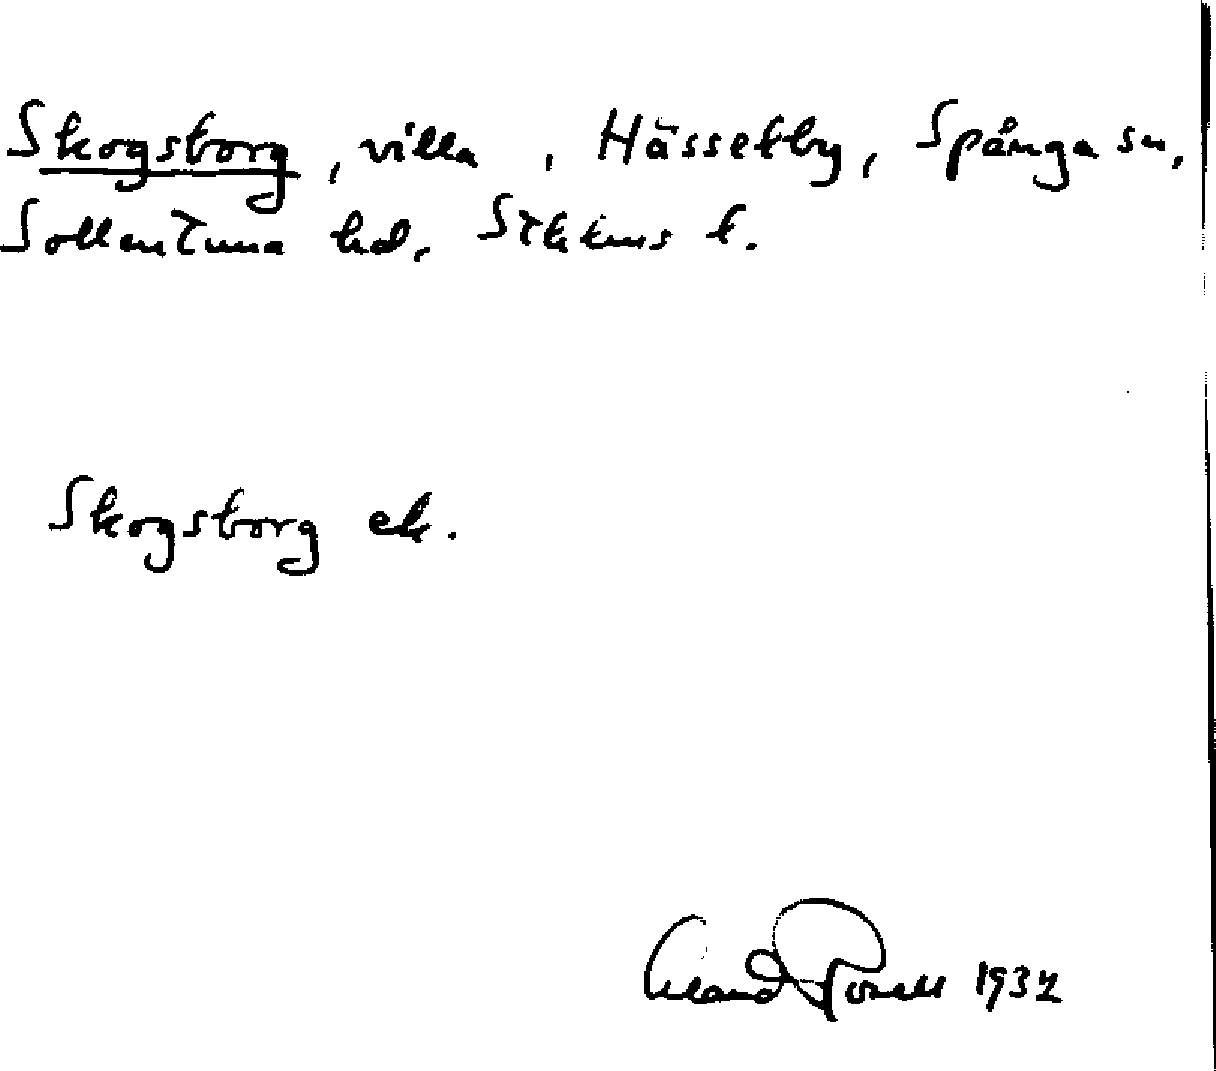 Skogsborg, villa, Hässelby, Spånga sn,
Sollentuna hd, Sthlms l.
Skogsborg ek.
1932